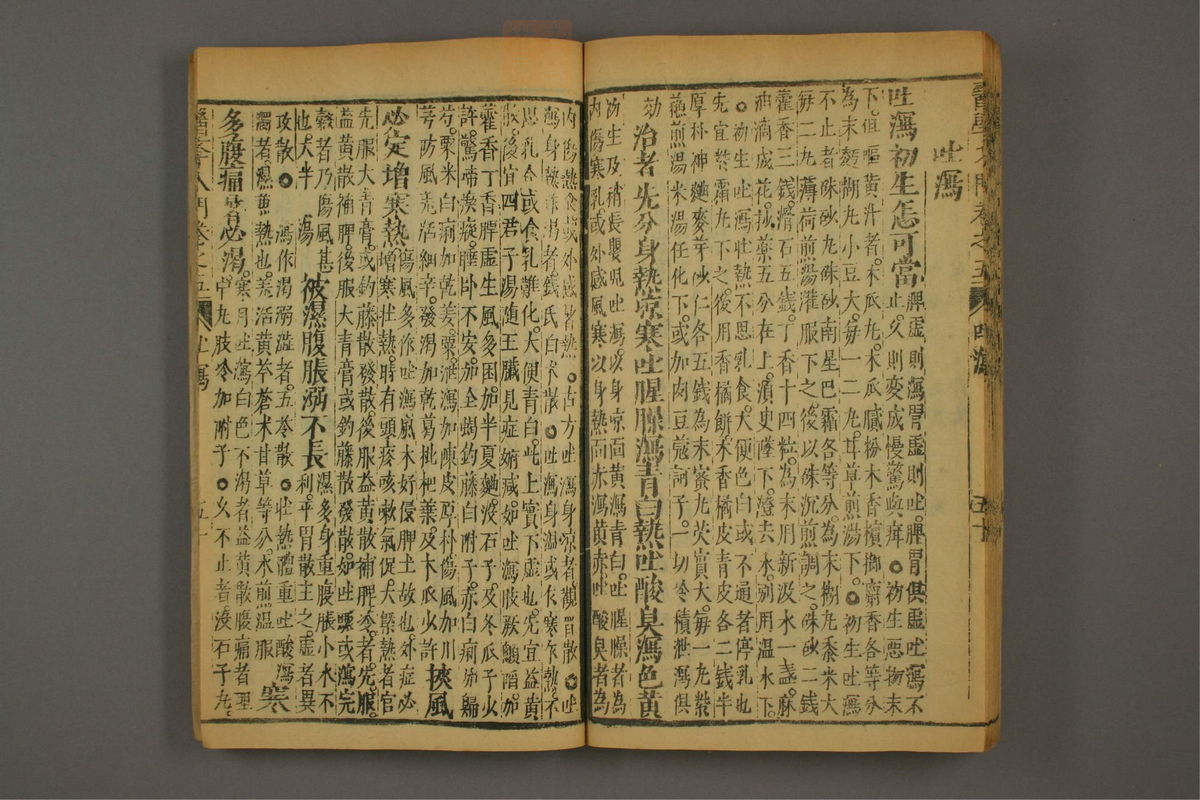 吐瀉
吐瀉初生怎可當脾虛則瀉胃虛則吐脾胃俱虛吐瀉不
止久則變成慢驚疳○初生惡物未
下但嘔黃汁者木瓜丸木瓜膩粉木香檳榔麝香各等分
為末麪糊丸小豆大每一二丸甘草煎湯下○初生吐瀉
不止者硃砂丸硃砂南星巴霜各等分為末糊丸黍米大
每二丸薄荷煎湯灌服下之後以硃沉煎調之硃砂二錢
藿香三錢滑石五錢丁香十四粒為末用新汲水一盞麻
油滴成花抄藥五分在上須史墜下澄去水別用溫水下
○初生吐瀉壯熱不思乳食大便色白或不通者停乳也
先宜紫霜丸下之後用香橘餅木香橘皮青皮各二錢半
厚朴神麯麥芽砂仁各五錢為末蜜丸芡實大每一丸紫
蘇煎湯米湯任化下或加肉豆蔻訶子一切冷積泄瀉俱
効治者先分身熱涼寒吐腥臊瀉青白熱吐酸臭瀉色黃
初生及稍長嬰兒吐瀉以身涼面黃瀉青白吐腥臊者為
內傷寒乳或外感風寒以身熱面赤瀉黃赤吐酸臭者為
內傷熱食或外感暑熱古方吐瀉身涼者觀音散○吐
瀉身熱錢氏白朮散○吐瀉身溫或乍寒乍熱不
思乳食或食乳難化大便青白此上實下虛也先宜益黃
散後宜四君子湯隨五臟見症加減如吐瀉肢厥加
藿香丁香脾虛生風多困加半夏麯沒石子及冬瓜子火
許驚啼瘈瘲睡臥不安加全蝎鈎藤白附子赤白痢加歸
芍粟米白痢加乾姜粟泄瀉加陳皮厚朴傷風加川
芎防風羌活細辛發渴加乾葛枇杷葉及木瓜火許挾風
必定增寒熱傷風多作吐瀉風木好侵脾土故也外症必
增寒壯熱時有頭疼咳嗽氣促大槩熱者宜
先服大青膏或鈎藤散發散後服益黃散補脾爹者先服
益黃散補脾後服大青膏或鈎藤散發散如吐嗽或瀉完
穀者乃傷風甚被濕腹脹瀉不長濕多身重腹脹小水不
也大半湯利平胃散主之虛者異
攻散○瀉作渴溺澁者五苓散○壯熱體重吐酸瀉寒
濁者濕兼熱也羌活黃芩蒼朮甘草等分水煎溫服
多腹痛暑必渴寒月吐瀉白色不渴者益黃散腹痛者理
中丸肢冷加附子○久不止者沒石子丸
醫學入門卷之五
吐瀉
五十